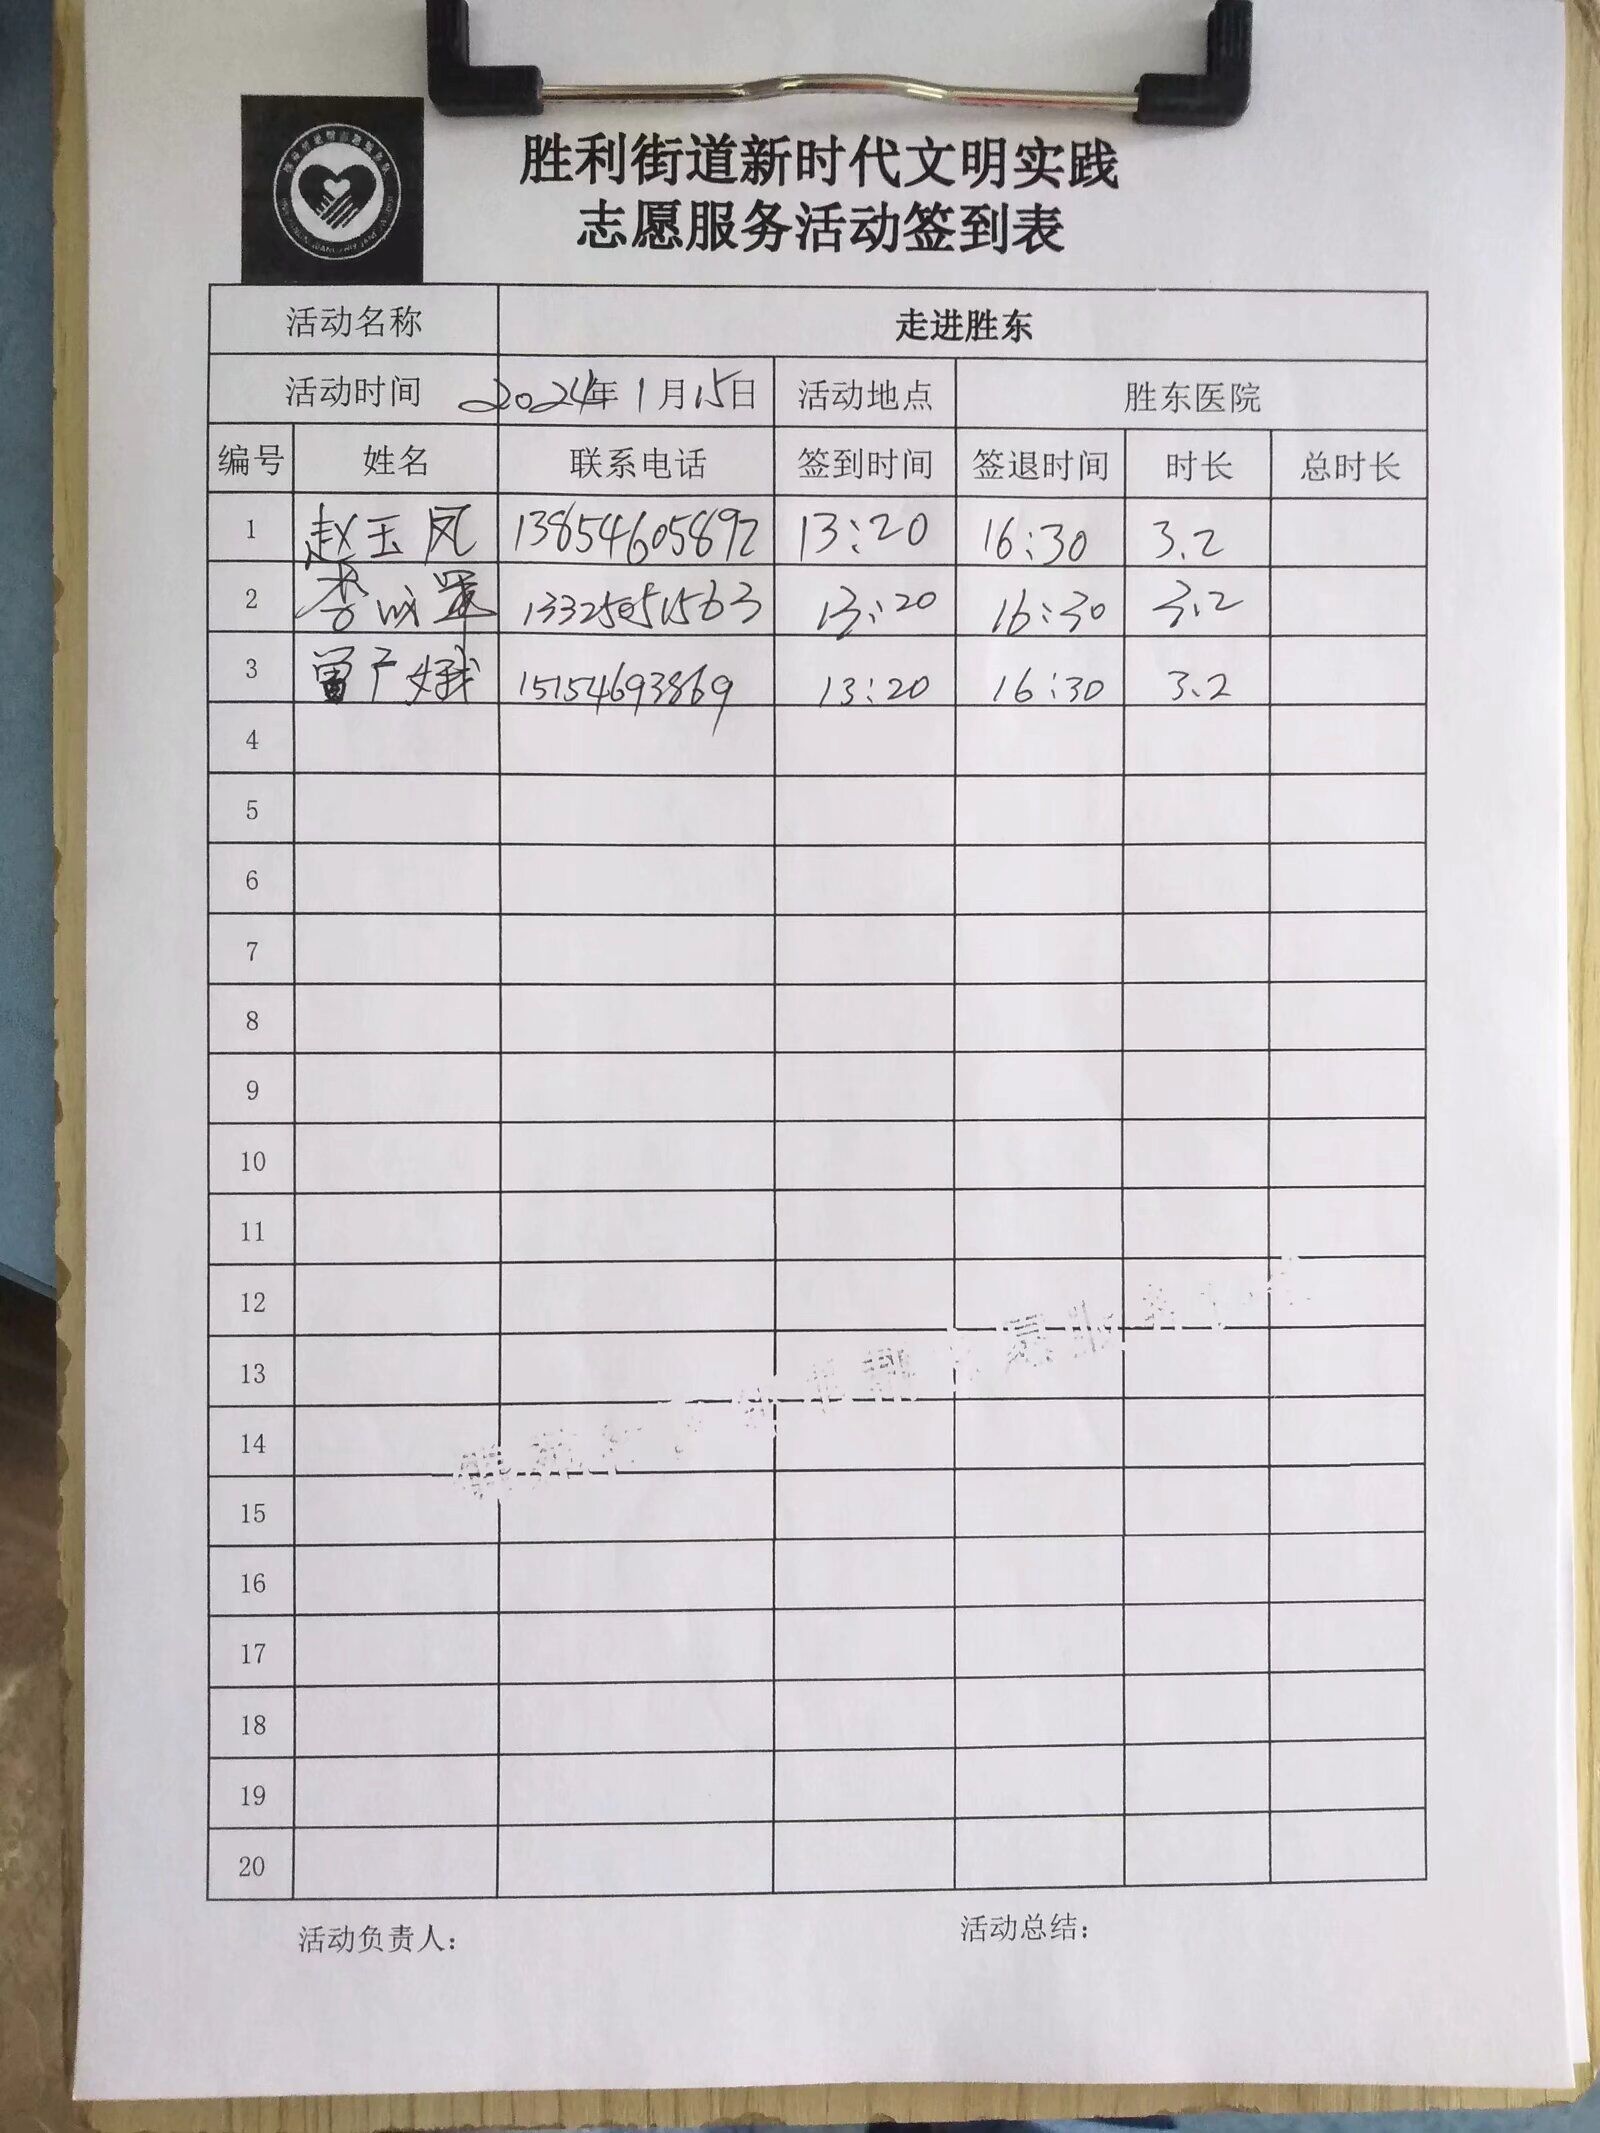 胜利街道新时代文明实践
志愿服务活动签到表
活动名称 走进胜东
活动时间 2024年1月15日 活动地点 胜东医院
编号 姓名 联系电话 签到时间 签退时间 时长 总时长
1 赵玉凤 13854605892 13:20 16:30 3.2
2 李 13325051563 13:20 16:30 3.2
3 曾广娥 15154693869 13:20 16:30 3.2
4
5
6
7
8
9
10
11
12
13
14
15
16
17
18
19
20
活动负责人: 活动总结: